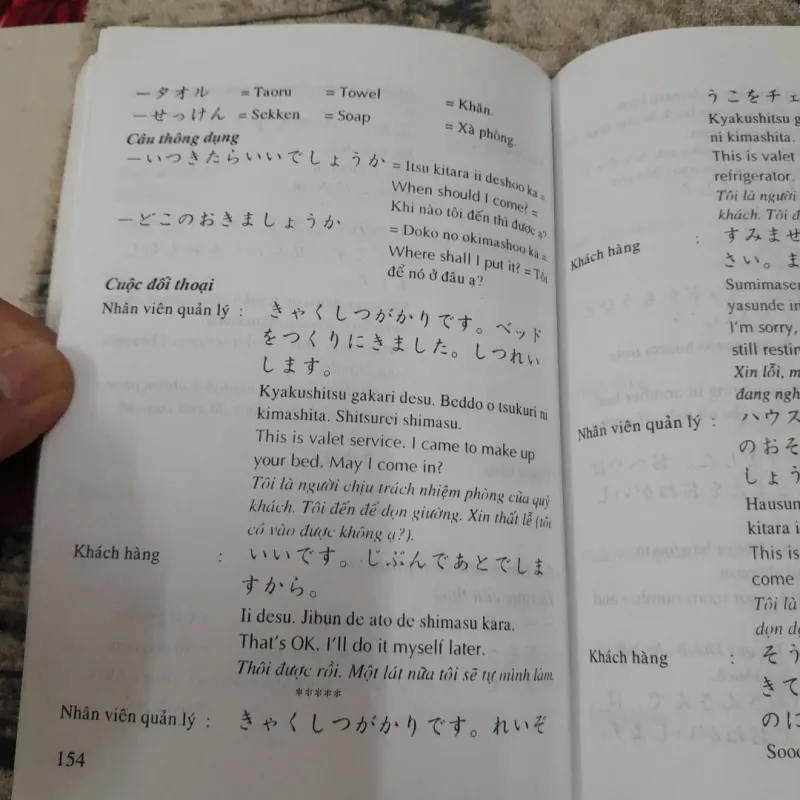 —タオル = Taoru = Towel = Khăn.
—せっけん = Sekken = Soap = Xà phòng.
Câu thông dụng
—いつきたらいいでしょうか = Itsu kitara ii deshoo ka =
When should I come? =
Khi nào tôi đến thì được ạ?
—どこのおきましょうか = Doko no okimashoo ka =
Where shall I put it? = Tôi
để nó ở đâu ạ?
Cuộc đối thoại
Nhân viên quản lý : きゃくしつがかりです。ベッド
をつくりにきました。しつれい
します。
Kyakushitsu gakari desu. Beddo o tsukuri ni
kimashita. Shitsurei shimasu.
This is valet service. I came to make up
your bed. May I come in?
Tôi là người chịu trách nhiệm phòng của quý
khách. Tôi đến để dọn giường. Xin thất lễ (tôi
có vào được không ạ?).
Khách hàng : いいです。じぶんであとでしま
すから。
Ii desu. Jibun de ato de shimasu kara.
That's OK. I'll do it myself later.
Thôi được rồi. Một lát nữa tôi sẽ tự mình làm.
*****
Nhân viên quản lý : きゃくしつがかりです。れいぞ
154
うこをチェ
Kyakushitsu g
ni kimashita.
This is valet
refrigerator.
Tôi là người
khách. Tôi đ
Khách hàng : すみませ
さい。ま
Sumimase
yasunde in
I'm sorry,
still restin
Xin lỗi, m
đang ngh
Nhân viên quản lý : ハウス
のおそ
しょう
Hausun
kitara i
This is
come
Tôi là
dọn dọ
Khách hàng : そう
きて
のに
Sooc